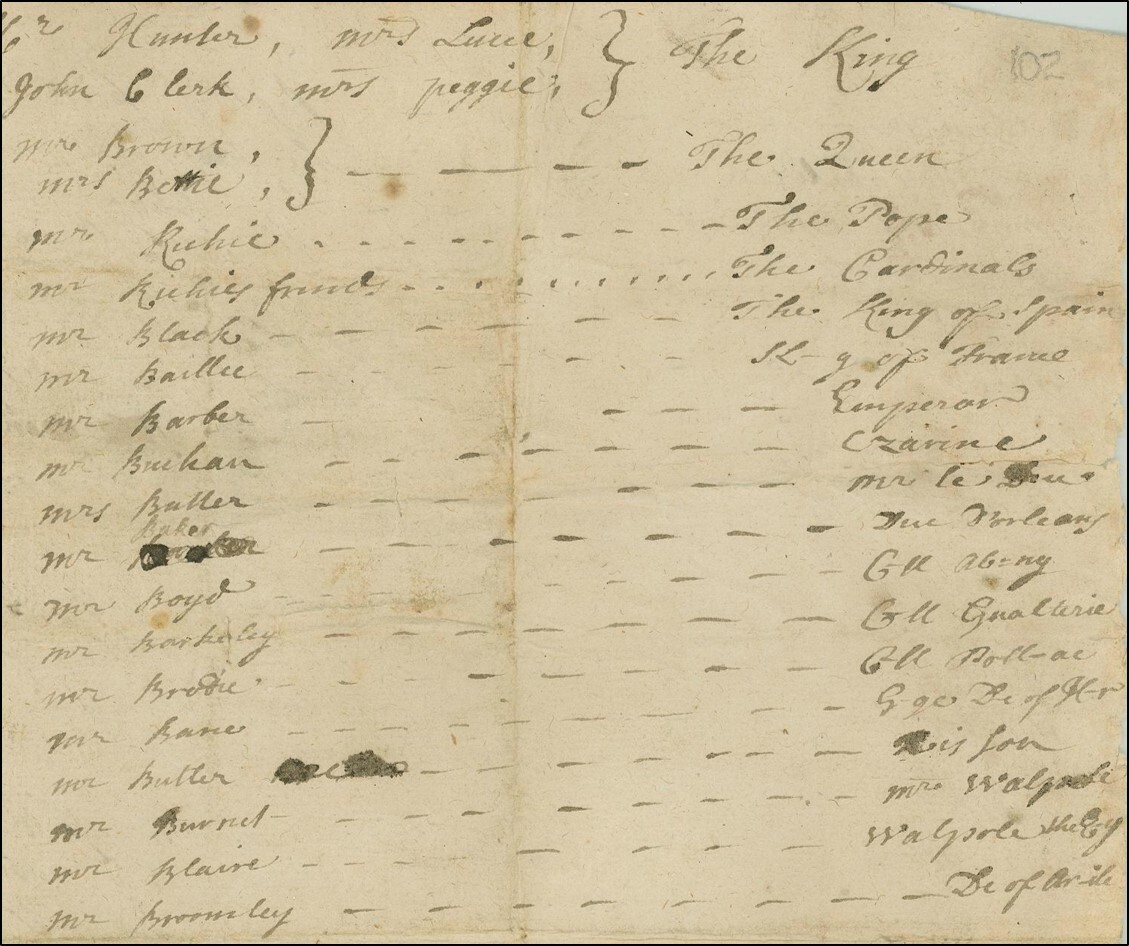 Mr Hunter, mrs Lucie, } The King 102
John Clerk, mrs peggie,
mr Brown, } — — — — The Queen
mrs Bettie,
mr Richie . - - - - - - - - The Pope
mr Richies friends - - - - - - - - The Cardinals
mr Black - - - - - - The King of Spain
mr Baillie - - - - - - K-g of France
mr Barber - - - - Emperor
mr Buchan - - - - - - - Czarine
mrs Butler - - - - - - - mr le Duc
mr Baker - - - - - - - Duc Dorleans
mr Boyd - - - - - - - Gll Ab=ny
mr Barkeley - - - - - - - Gll Gualterie
mr Brodie - - - - - - - Gll
mr Bane - - - - - - - G ge De of H-r
mr Butler - - - - - - His son
mr Burnet - - - - - - - mr Walpole
mr Blaire - - - - - - - Walpole the
mr Broomley - - - - - - - - De of Ar-ile